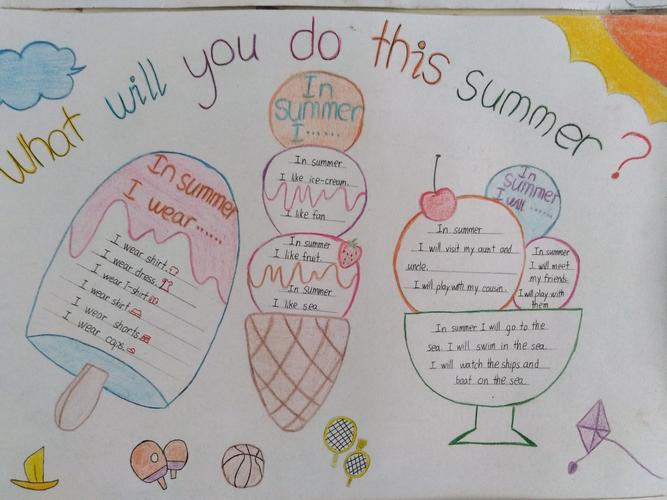 What will you do this summer?
In summer
I wear......
I wear shirt.
I wear dress.
I wear T-shirt
I wear skirt
I wear shorts
I wear caps.
In
summer
I......
In summer
I like ice-cream.
I like fan
In summer
I like fruit.
In summer
I like sea.
In
summer
I will ......
In summer
I will visit my aunt and
uncle.
I will play with my cousin.
In summer
I will meet
my friends.
I will play with
them
In summer I will go to the
sea. I will swim in the sea.
I will watch the ships and
boat on the sea.